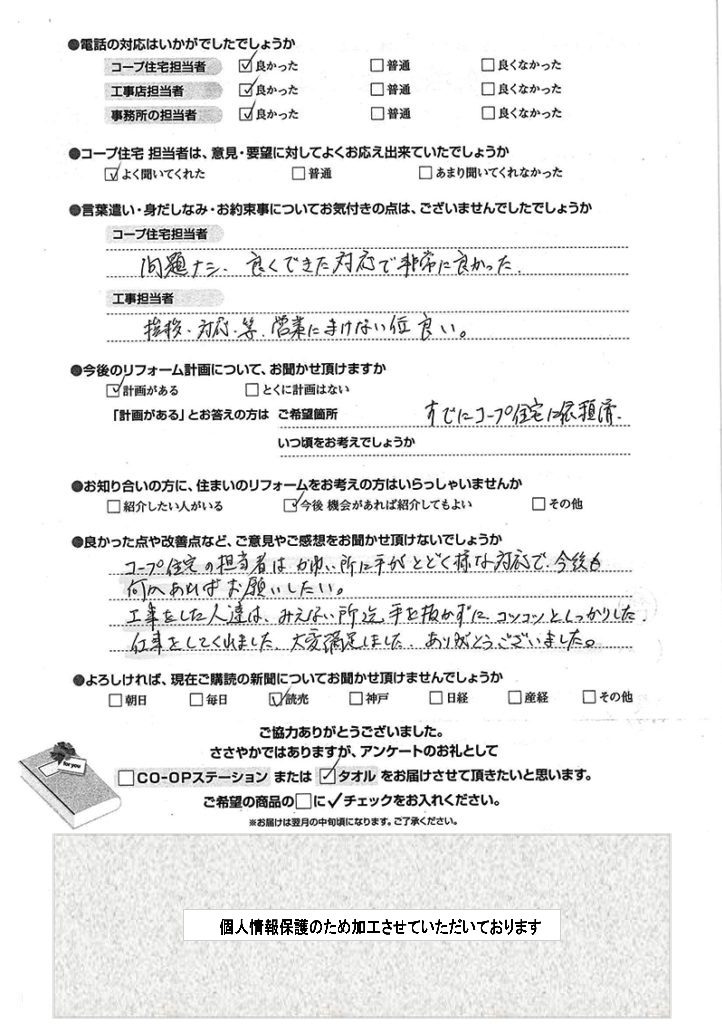 ●電話の対応はいかがでしたでしょうか
コープ住宅担当者 ☑良かった □普通 □良くなかった
工事店担当者 ☑良かった □普通 □良くなかった
事務所の担当者 ☑良かった □普通 □良くなかった
●コープ住宅 担当者は、意見・要望に対してよくお応え出来ていたでしょうか
☑よく聞いてくれた □普通 □あまり聞いてくれなかった
●言葉遣い・身だしなみ・お約束事についてお気付きの点は、ございませんでしたでしょうか
コープ住宅担当者
問題ナシ、良くできた対応で非常に良かった。
工事担当者
挨拶、対応、等、営業にまけない位良い。
●今後のリフォーム計画について、お聞かせ頂けますか
☑計画がある □とくに計画はない
「計画がある」とお答えの方は ご希望箇所 すでにコープ住宅に依頼済.
いつ頃をお考えでしょうか
●お知り合いの方に、住まいのリフォームをお考えの方はいらっしゃいませんか
□紹介したい人がいる ☑今後 機会があれば紹介してもよい □その他
●良かった点や改善点など、ご意見やご感想をお聞かせ頂けないでしょうか
コープ住宅の担当者はかゆい所に手がとどく様な対応で、今後も
何かあればお願いしたい。
工事をした人達は、みえない所迄、手を抜かずに、コツコツとしっかりした
仕事をしてくれました、大変満足しました、ありがとうございました。
●よろしければ、現在ご購読の新聞についてお聞かせ頂けませんでしょうか
□朝日 □毎日 ☑読売 □神戸 □日経 □産経 □その他
ご協力ありがとうございました。
ささやかではありますが、アンケートのお礼として
for you
□CO-OPステーション または ☑タオル をお届けさせて頂きたいと思います。
ご希望の商品の□に✓チェックをお入れください。
※お届けは翌月の中旬頃になります。ご了承ください。
個人情報保護のため加工させていただいております